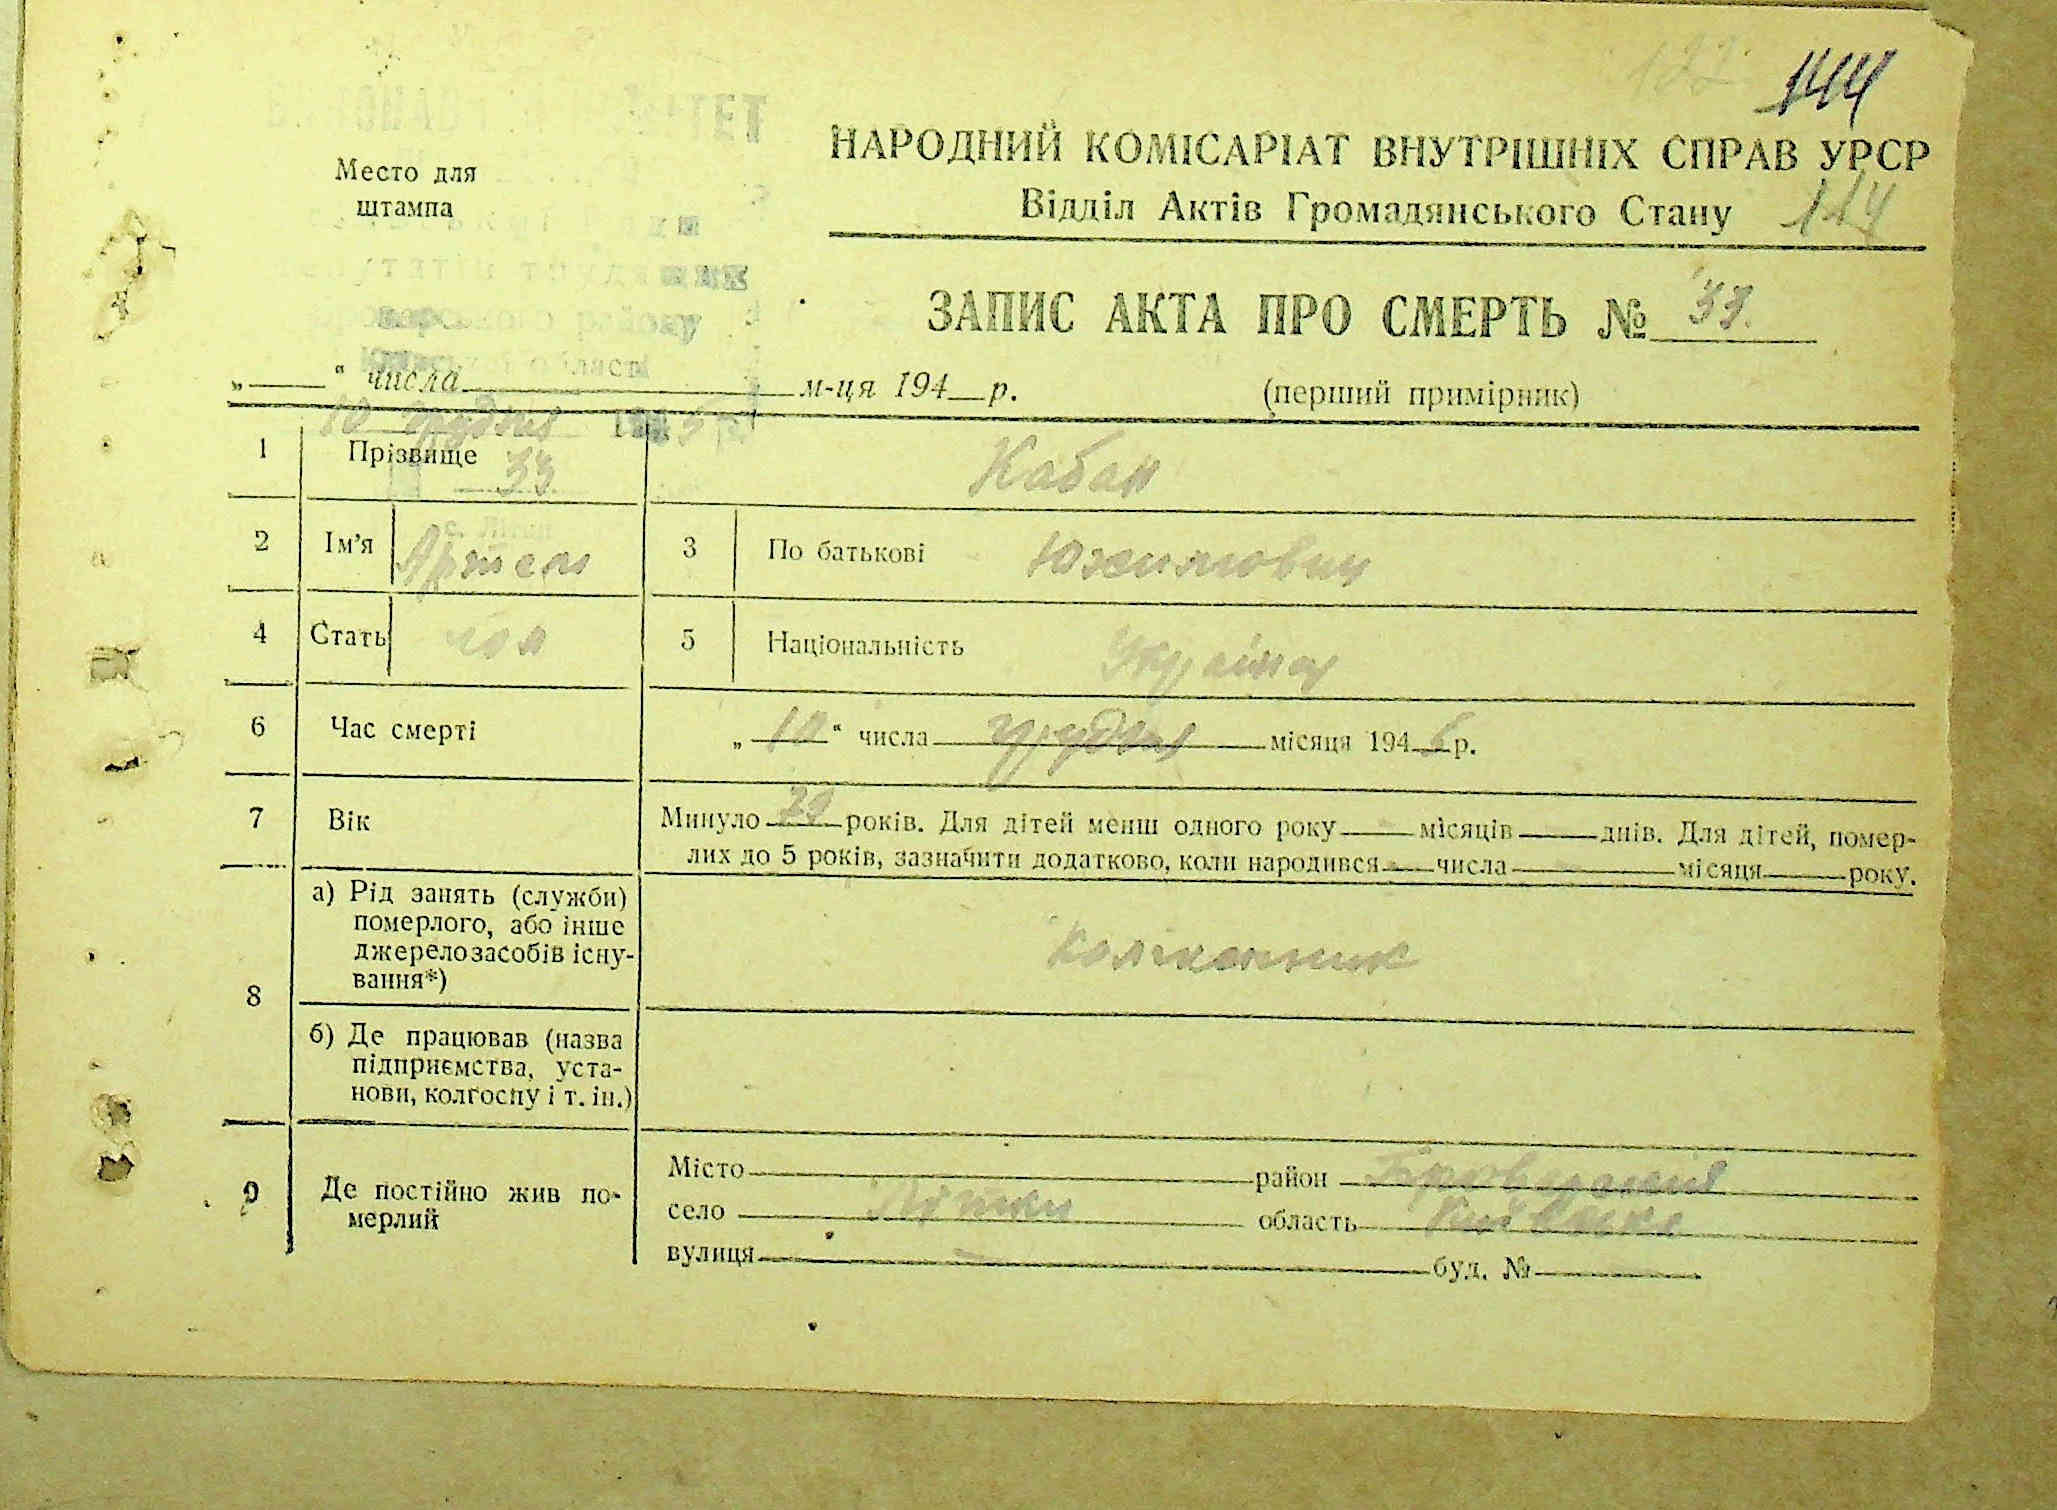 122 144
Место для
штампа
НАРОДНИЙ КОМІСАРІАТ ВНУТРІШНІХ СПРАВ УРСР
Відділ Актів Громадянського Стану 114
ЗАПИС АКТА ПРО СМЕРТЬ № 33.
району
області
„ “ числа м-ця 194 р. (перший примірник)
10 грудня
33
1 Прізвище Кабан
2 Ім'я Артем 3 По батькові Юхимович
4 Стать чол 5 Національність Українц
6 Час смерті „ 10 “ числа грудня місяця 194 р.
7 Вік Минуло 39 років. Для дітей менш одного року місяців днів. Для дітей, помер-
лих до 5 років, зазначити додатково, коли народився числа місяця року.
8 а) Рід занять (служби)
померлого, або інше
джерело засобів існу-
вання*)
Колгоспник
б) Де працював (назва
підприємства, уста-
нови, колгоспу і т. ін.)
9 Де постійно жив по-
мерлий
Місто район Броварський
село Літки область Київська
вулиця — буд. №